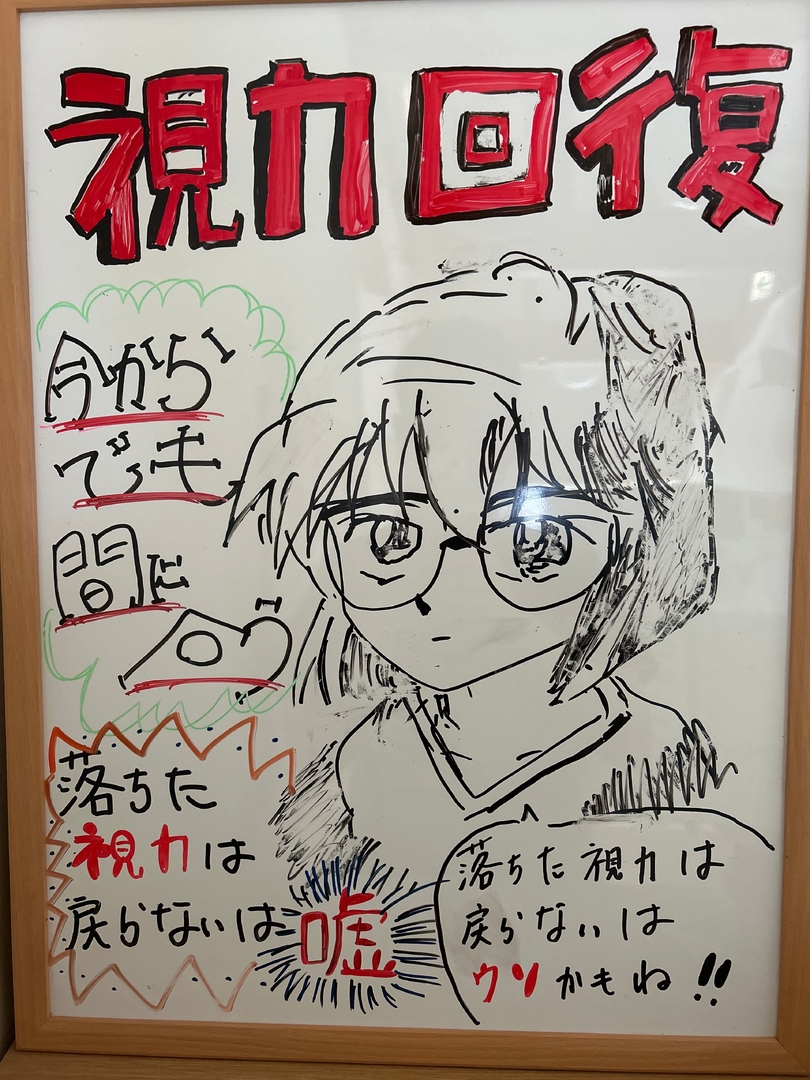 視力回復
今から
でも
間に
合う
落ちた
視力は
戻らないは嘘
落ちた視力は
戻らないは
ウソかもね!!